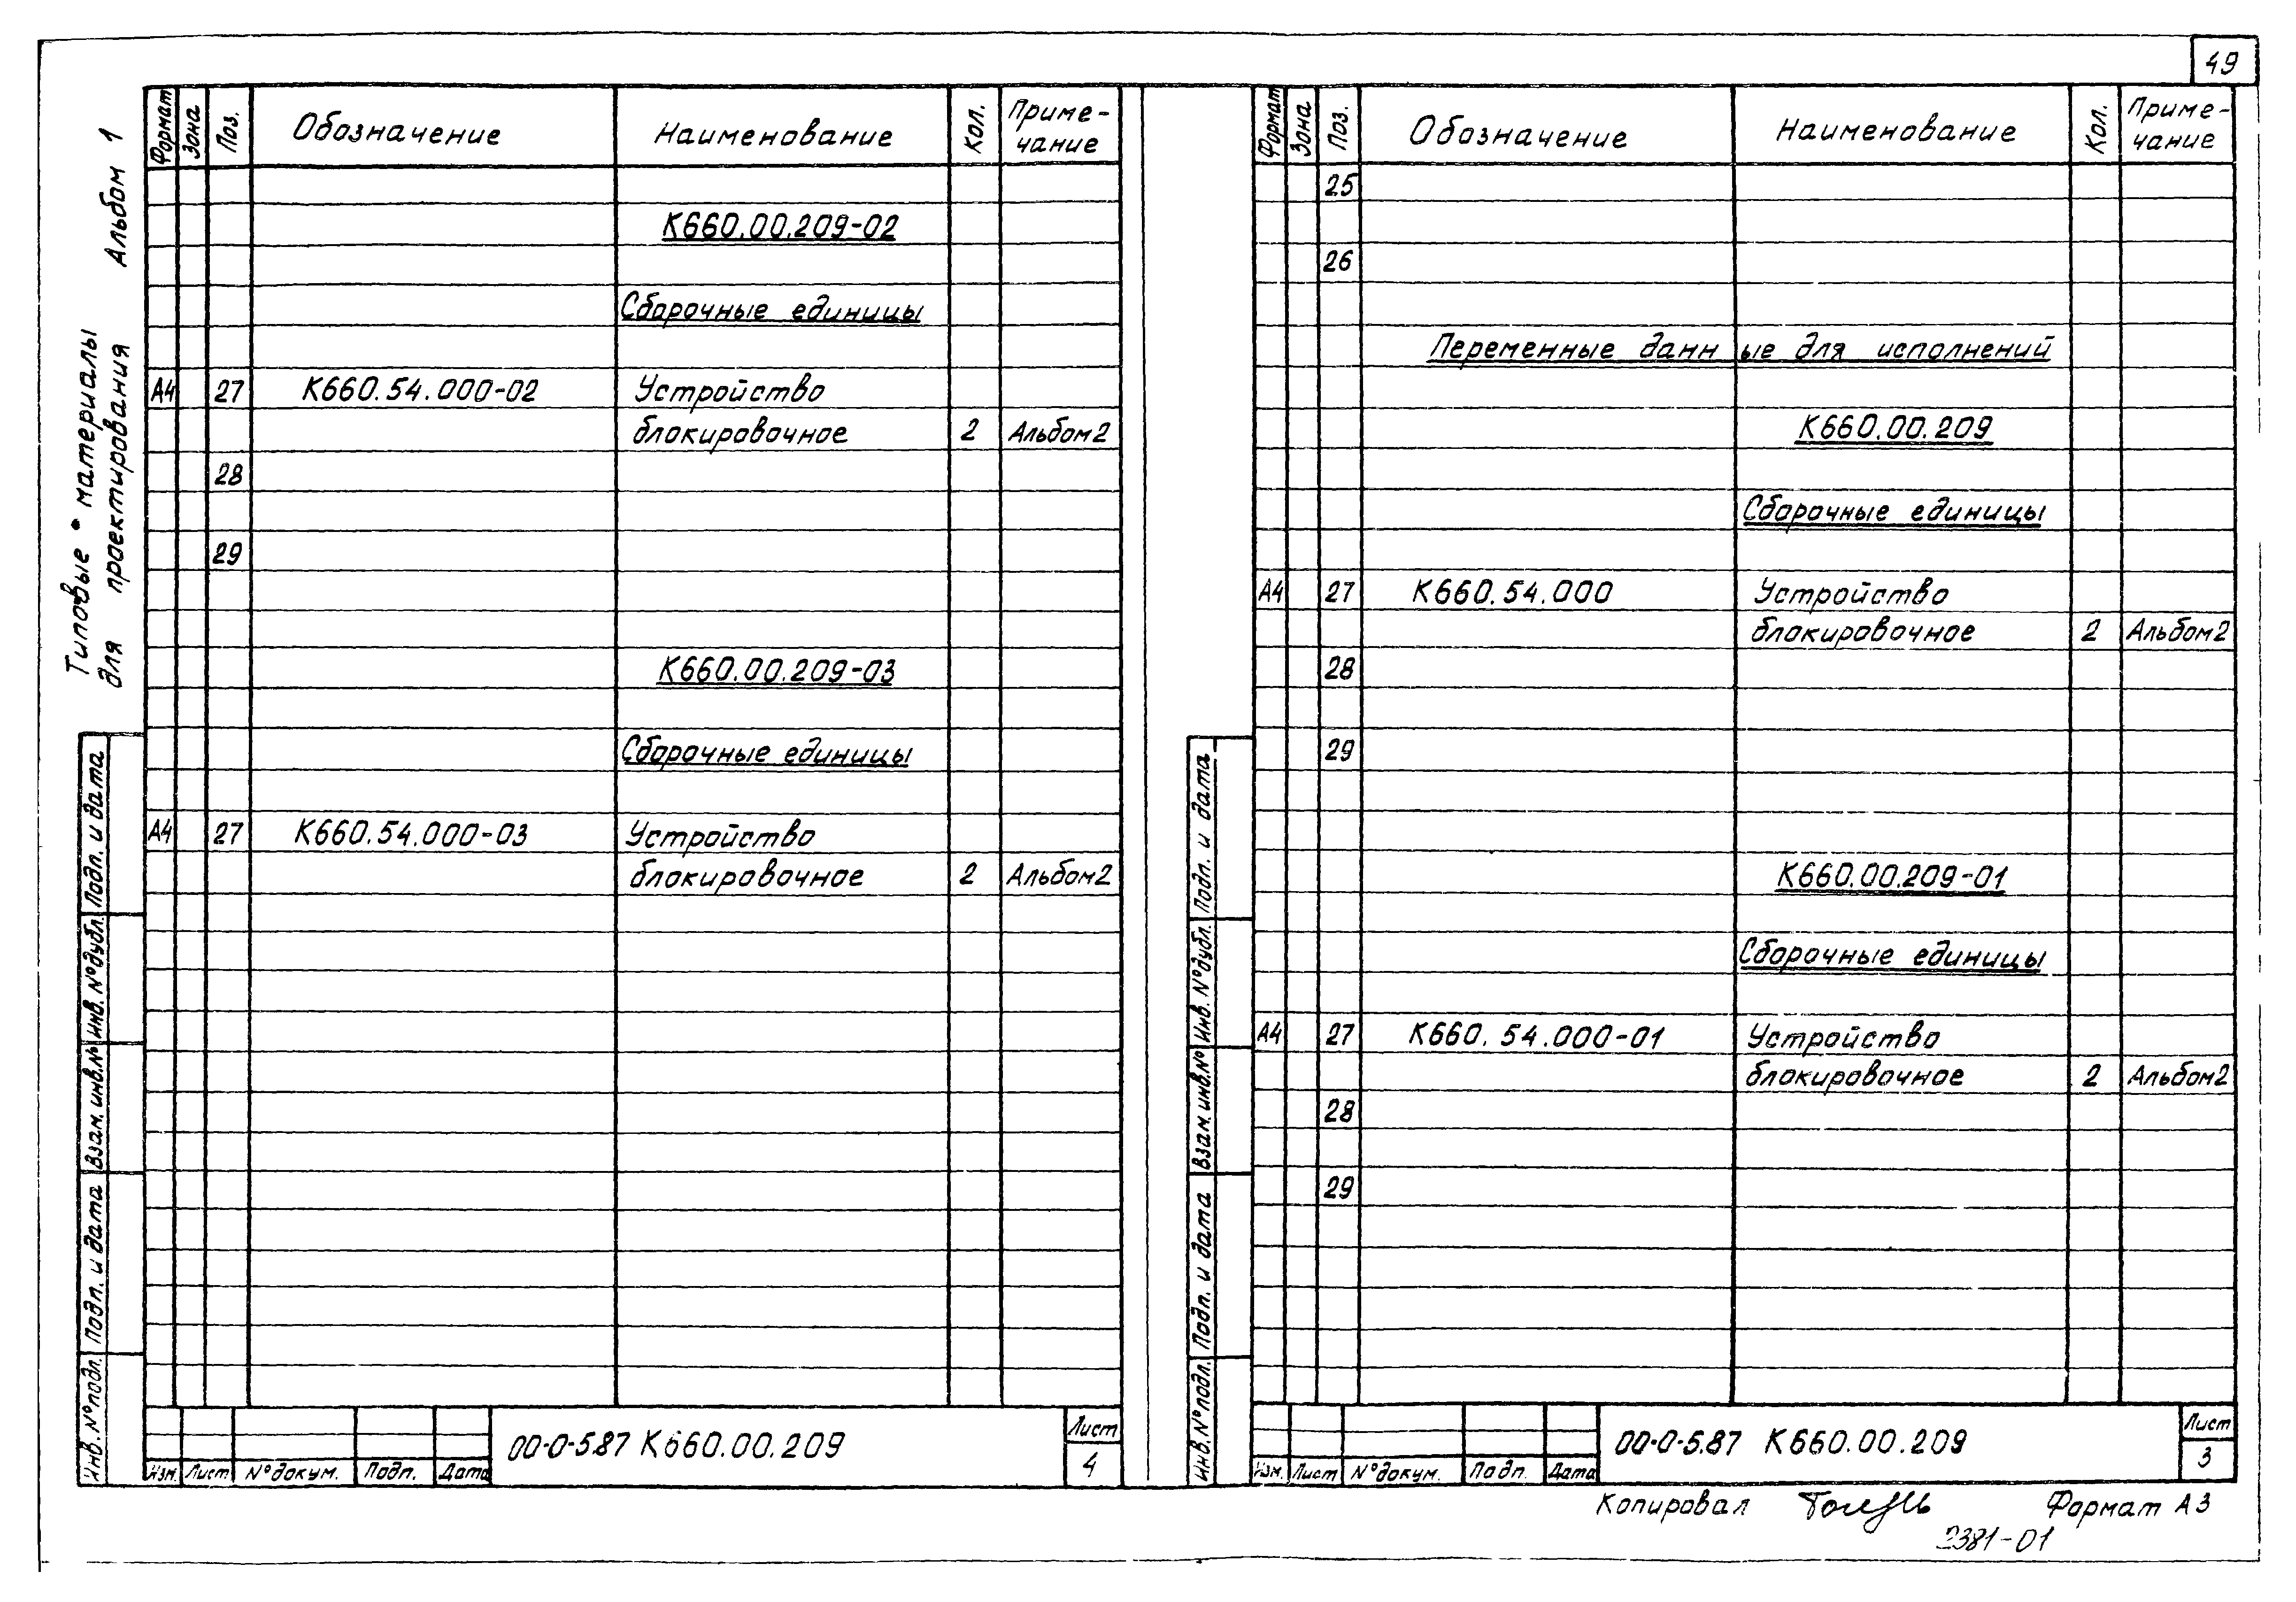 49
Типовые материалы
для проектирования
Альбом 1
Формат Зона Поз. Обозначение Наименование Кол. Приме-
чание
К660.00.209-02
Сборочные единицы
А4 27 К660.54.000-02 Устройство
блокировочное 2 Альбом2
28
29
К660.00.209-03
Сборочные единицы
А4 27 К660.54.000-03 Устройство
блокировочное 2 Альбом2
Подп. и дата
Инв. №дубл.
Взам. инв.№
Подп. и дата
Инв. №подл.
Изм. Лист №докум. Подп. Дата
00-0-5.87 К660.00.209
Лист
4
Формат Зона Поз. Обозначение Наименование Кол. Приме-
чание
25
26
Переменные данные для исполнений
К660.00.209
Сборочные единицы
А4 27 К660.54.000 Устройство
блокировочное 2 Альбом2
28
29
К660.00.209-01
Сборочные единицы
А4 27 К660.54.000-01 Устройство
блокировочное 2 Альбом2
28
29
Подп. и дата
Инв. №дубл.
Взам. инв.№
Подп. и дата
Инв. №подл.
Изм. Лист №докум. Подп. Дата
00-0-5.87 К660.00.209
Лист
3
Копировал Формат А3
2381-01